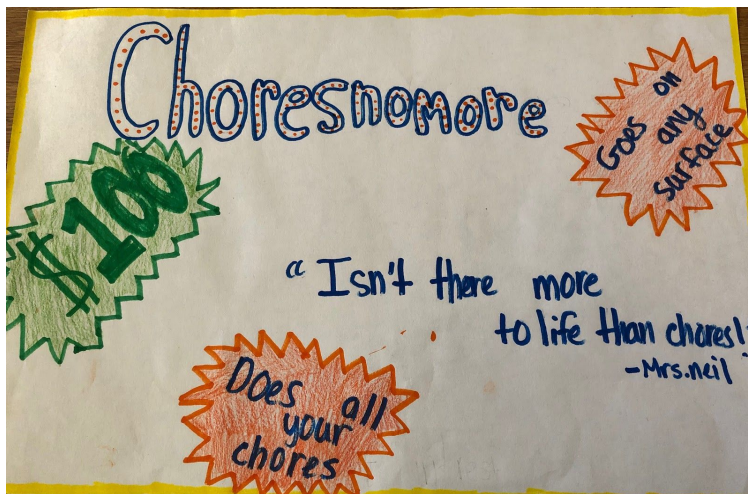 Choresnomore
Goes on
any
surface
$100
“Isn't there more
to life than chores!
-Mrs.neil
Does all
your
chores